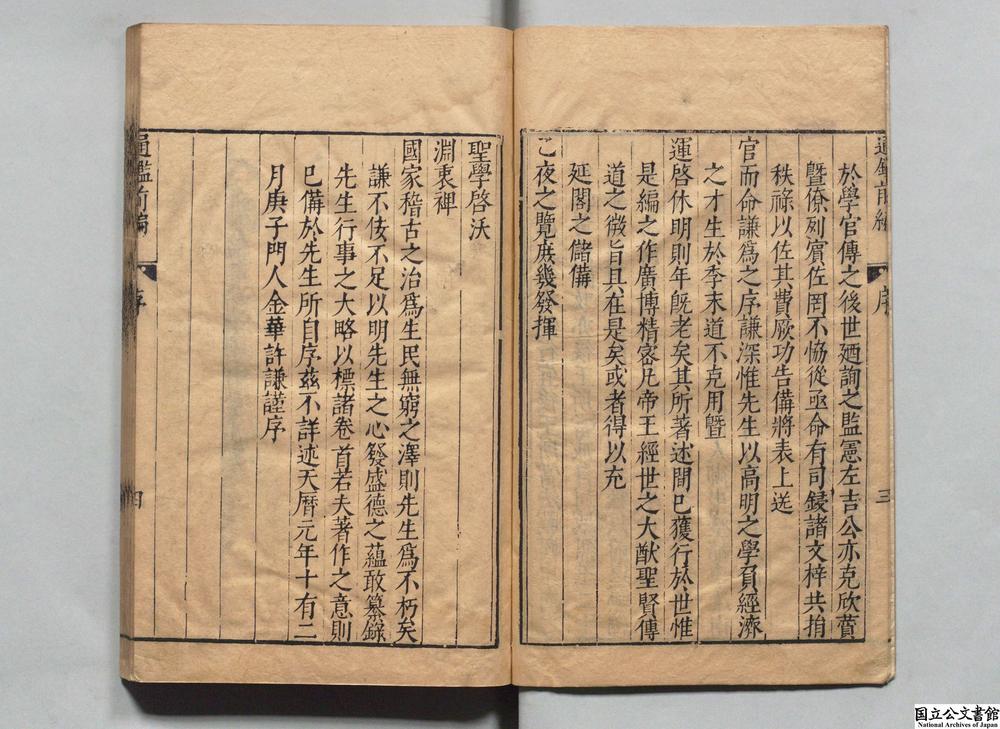 通鑑前編 序 三
於學官傳之後世廼詢之監憲左吉公亦克欣賛
曁僚列賓佐罔不恊從亟命有司鋟諸文梓共捐
秩祿以佐其費厥功告備將表上送
官而命謙爲之序謙深惟先生以高明之學負經濟
之才生於季末道不克用曁
運啓休明則年旣老矣其所著述間已獲行於世惟
是編之作廣博精密凡帝王經世之大猷聖賢傳
道之微旨具在是矣或者得以充
延閣之儲備
乙夜之覽庻幾發揮
聖學啓沃
淵衷裨
國家稽古之治爲生民無窮之澤則先生爲不朽矣
謙不佞不足以明先生之心發盛德之蘊敢纂錄
先生行事之大略以標諸卷首若夫著作之意則
已備於先生所自序茲不詳述天曆元年十有二
月庚子門人金華許謙謹序
通鑑前編 序 四
国立公文書館
National Archives of Japan